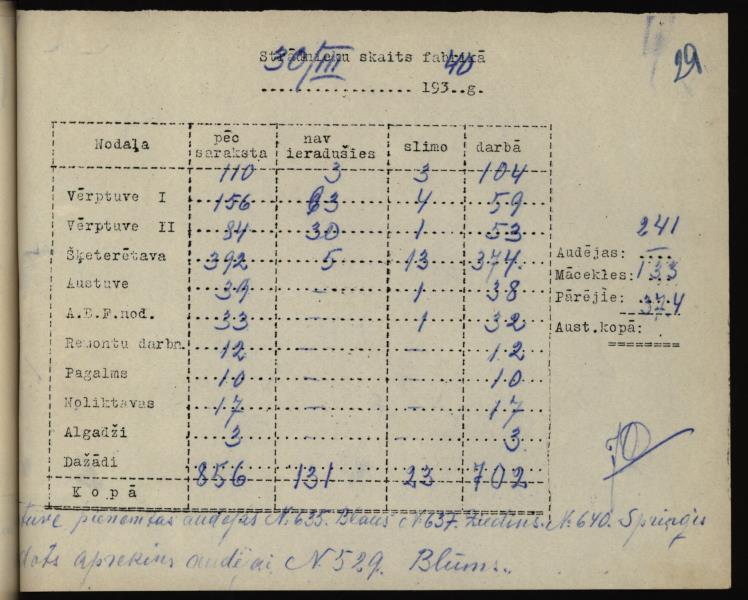 29
Strādnieku skaits fabrikā
30/III 193 40 g.
Nodaļa pēc saraksta nav ieradušies slimo darbā
Vērptuve I 110 3 3 104
Vērptuve II 156 93 4 59
Šķeterētava 84 30 1 53
Austuve 392 5 13 374
A.B.F.nod. 39 – 1 38
Remontu darbn. 33 – 1 32
Pagalms 12 – – 12
Noliktavas 10 – – 10
Algadži 17 – – 17
Dažādi 3 – – 3
Kopā 856 131 23 702
Audējas: 241
Mācekles: —
Pārējie: 133
Aust.kopā: 374
tuvē pieņemtas audējas N. 635. Blaus N 637. Ziediņš. N. 640. Spriņģis
dots aprēķins audējai N 529. Blūms.